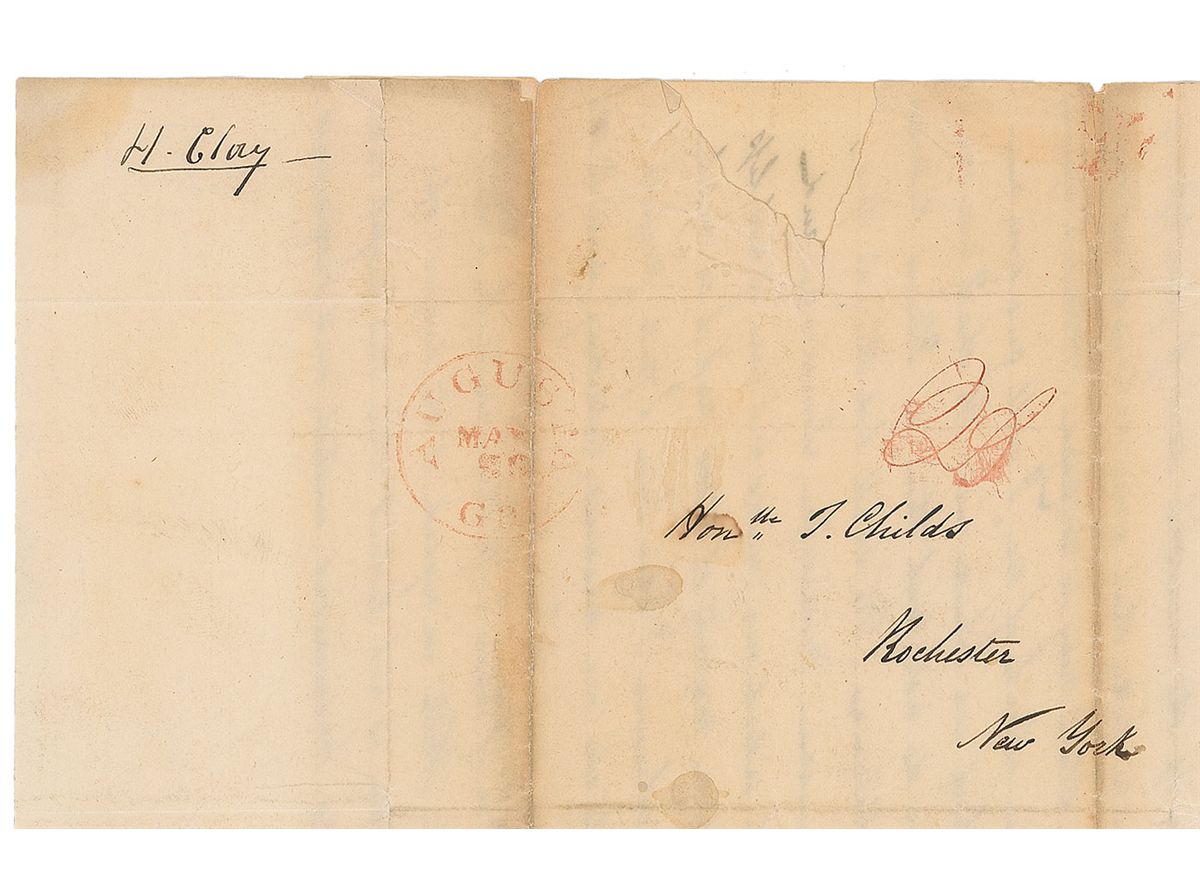 H. Clay
AUGUSTA
MAY
GEO
Honble J. Childs
Rochester
New York